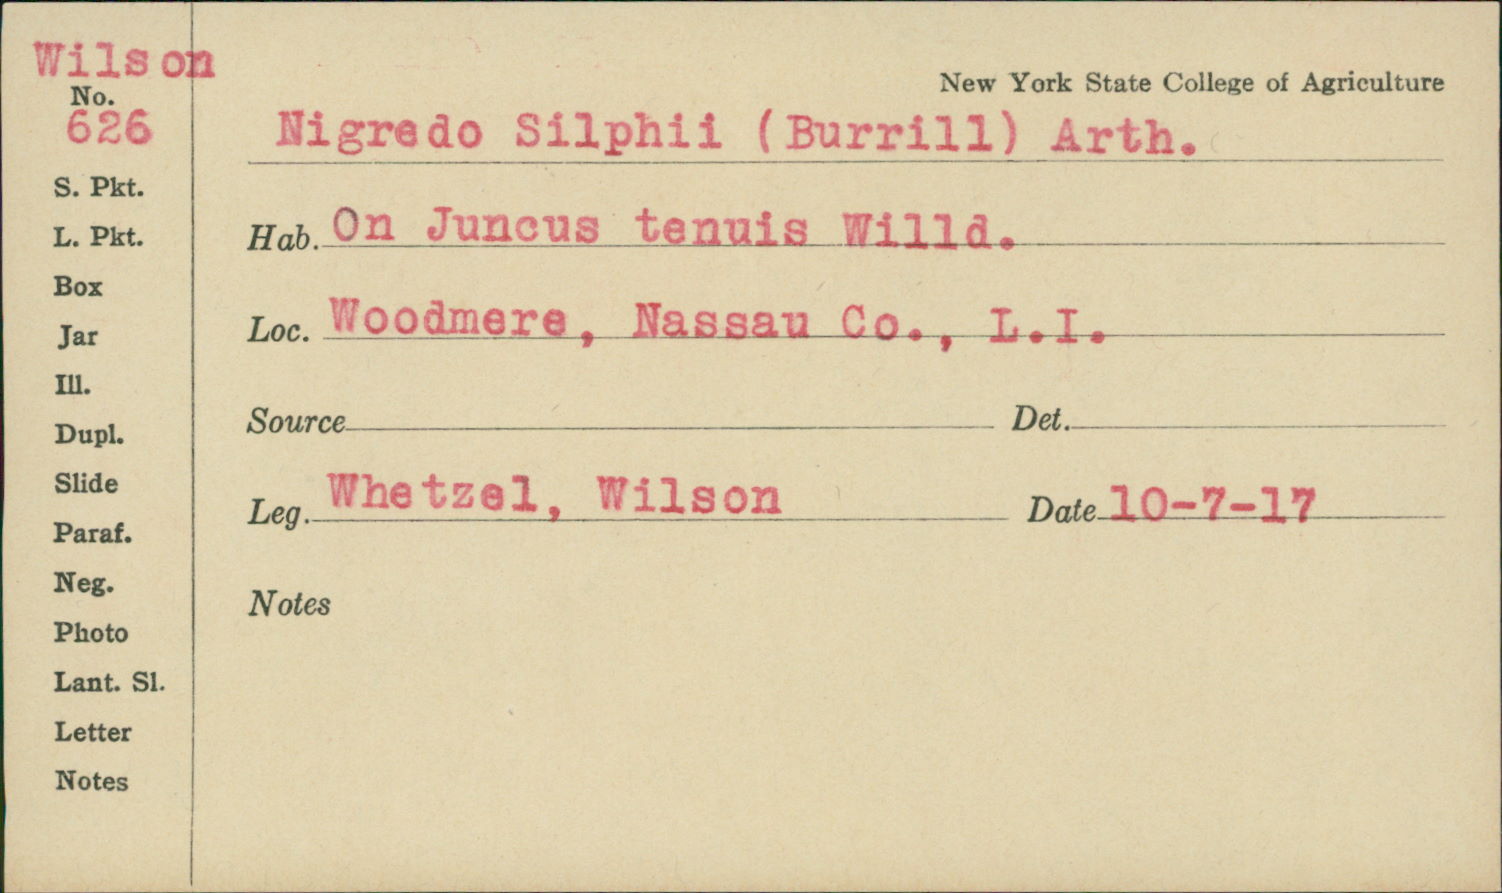 Wilson
No.
626
S. Pkt.
L. Pkt.
Box
Jar
Ill.
Dupl.
Slide
Paraf.
Neg.
Photo
Lant. Sl.
Letter
Notes
New York State College of Agriculture
Nigredo Silphii (Burrill) Arth.
Hab. On Juncus tenuis Willd.
Loc. Woodmere, Nassau Co., L.I.
Source Det.
Leg. Whetzel, Wilson Date 10-7-17
Notes